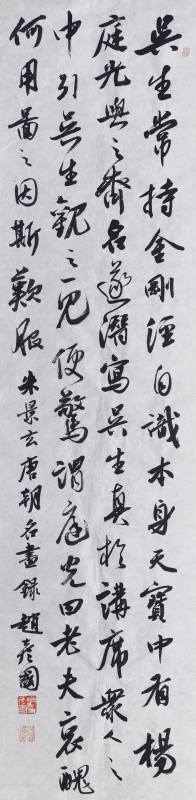 吳生常持金剛經自識本身天寶中有楊
庭光與之齊名遂潛寫吳生真於講席眾人之
中引吳生觀之一見便驚謂庭光曰老夫衰醜
何用圖之因斯歎服朱景玄唐朝名畫錄趙彥國